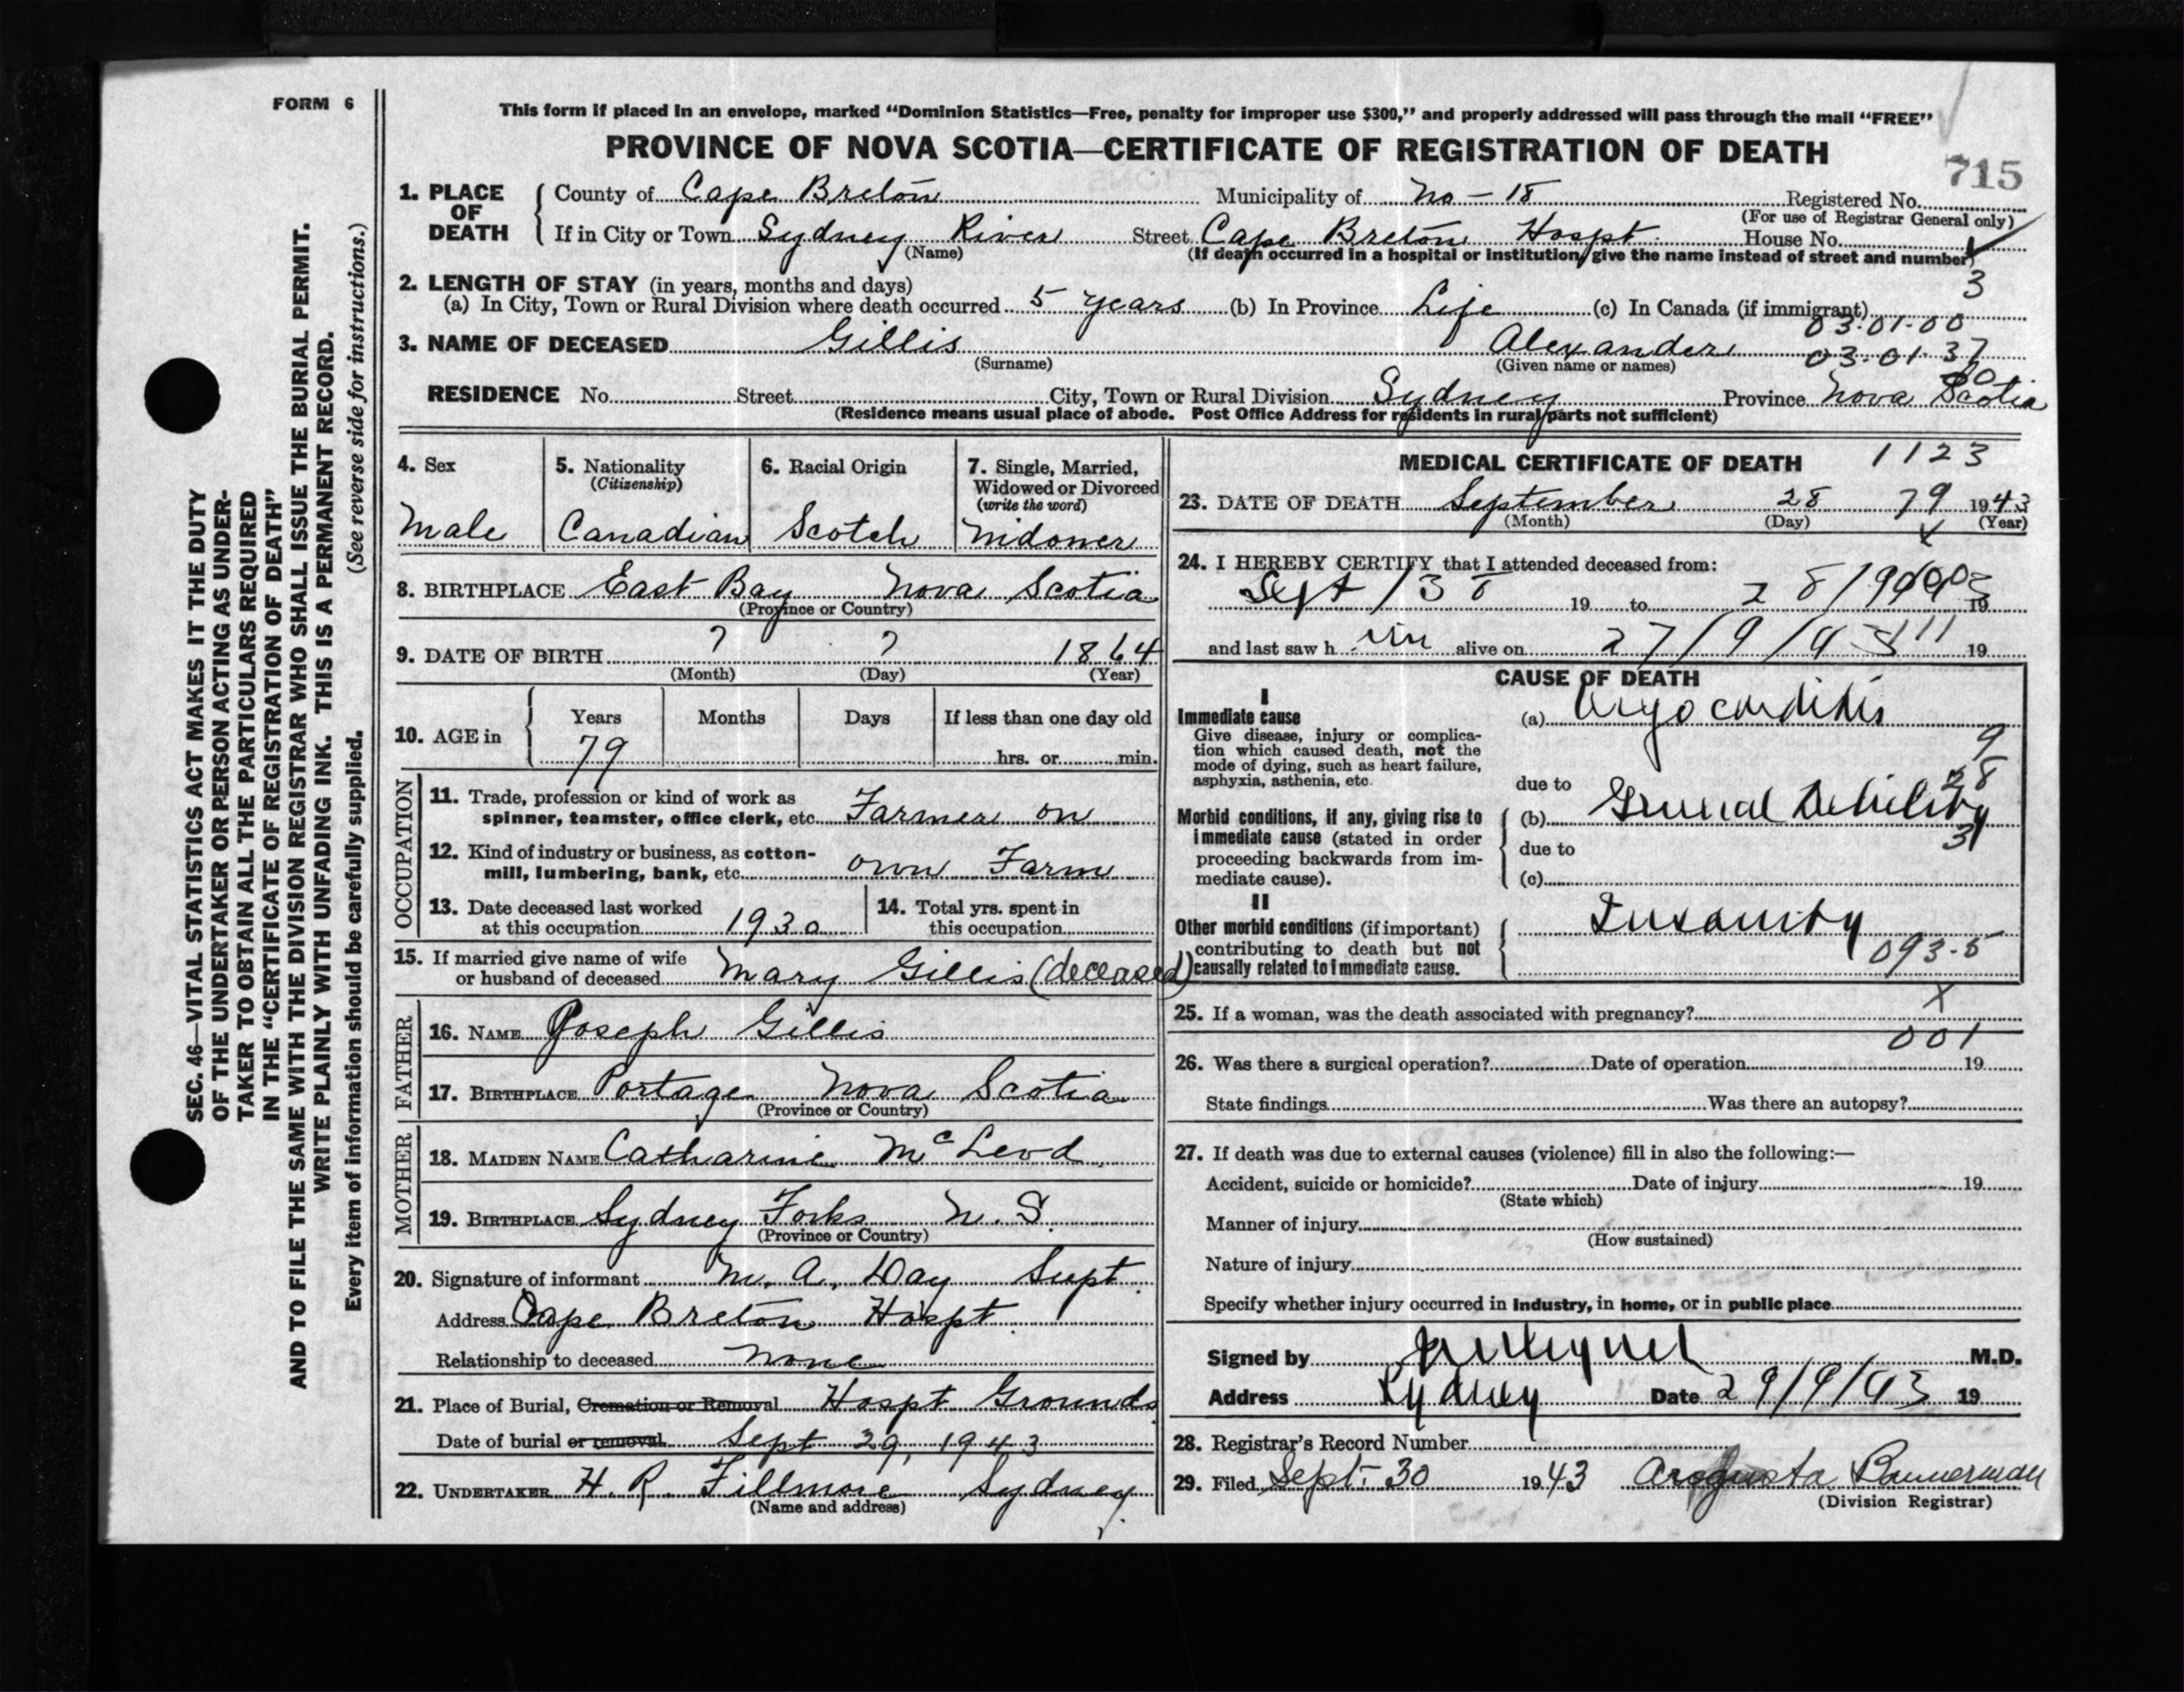 FORM 6
This form if placed in an envelope, marked “Dominion Statistics—Free, penalty for improper use $300,” and properly addressed will pass through the mail “FREE”
PROVINCE OF NOVA SCOTIA—CERTIFICATE OF REGISTRATION OF DEATH
715
1. PLACE OF DEATH County of Cape Breton Municipality of No - 18 Registered No.
(For use of Registrar General only)
If in City or Town Sydney River Street Cape Breton Hospt. House No.
(Name) (If death occurred in a hospital or institution, give the name instead of street and number)
3
2. LENGTH OF STAY (in years, months and days)
(a) In City, Town or Rural Division where death occurred 5 years (b) In Province Life (c) In Canada (if immigrant)
03-01-00
3. NAME OF DECEASED Gillis Alexander 03-01-37
(Surname) (Given name or names)
RESIDENCE No. Street City, Town or Rural Division Sydney Province Nova Scotia
(Residence means usual place of abode. Post Office Address for residents in rural parts not sufficient)
SEC. 46—VITAL STATISTICS ACT MAKES IT THE DUTY
OF THE UNDERTAKER OR PERSON ACTING AS UNDER-
TAKER TO OBTAIN ALL THE PARTICULARS REQUIRED
IN THE “CERTIFICATE OF REGISTRATION OF DEATH”
AND TO FILE THE SAME WITH THE DIVISION REGISTRAR WHO SHALL ISSUE THE BURIAL PERMIT.
WRITE PLAINLY WITH UNFADING INK. THIS IS A PERMANENT RECORD.
Every item of information should be carefully supplied. (See reverse side for instructions.)
4. Sex
Male
5. Nationality
(Citizenship)
Canadian
6. Racial Origin
Scotch
7. Single, Married,
Widowed or Divorced
(write the word)
Widower
8. BIRTHPLACE East Bay Nova Scotia
(Province or Country)
9. DATE OF BIRTH ? ? 1864
(Month) (Day) (Year)
10. AGE in Years Months Days If less than one day old
79 hrs. or min.
OCCUPATION
11. Trade, profession or kind of work as
spinner, teamster, office clerk, etc. Farmer on
12. Kind of industry or business, as cotton-
mill, lumbering, bank, etc. own Farm
13. Date deceased last worked
at this occupation 1930
14. Total yrs. spent in
this occupation
15. If married give name of wife
or husband of deceased Mary Gillis (deceased)
FATHER
16. NAME Joseph Gillis
17. BIRTHPLACE Portage Nova Scotia
(Province or Country)
MOTHER
18. MAIDEN NAME Catharine McLeod
19. BIRTHPLACE Sydney Forks N. S.
(Province or Country)
20. Signature of informant M. A. Day Supt.
Address Cape Breton Hospt.
Relationship to deceased none
21. Place of Burial, Cremation or Removal Hospt Grounds
Date of burial or removal Sept 29, 1943
22. UNDERTAKER H. R. Fillmore Sydney
(Name and address)
MEDICAL CERTIFICATE OF DEATH 1123
23. DATE OF DEATH September 28 79 1943
(Month) (Day) (Year)
24. I HEREBY CERTIFY that I attended deceased from:
Sept 19 to 19
and last saw h im alive on 27/9/43 19
CAUSE OF DEATH
I
Immediate cause
Give disease, injury or complica-
tion which caused death, not the
mode of dying, such as heart failure,
asphyxia, asthenia, etc.
(a) Myocarditis
9
28
due to
Morbid conditions, if any, giving rise to
immediate cause (stated in order
proceeding backwards from im-
mediate cause).
(b) General Debility
31
due to
(c)
II
Other morbid conditions (if important)
contributing to death but not
causally related to immediate cause.
Insanity
093-5
25. If a woman, was the death associated with pregnancy? X
001
26. Was there a surgical operation? Date of operation 19
State findings Was there an autopsy?
27. If death was due to external causes (violence) fill in also the following:—
Accident, suicide or homicide? Date of injury 19
(State which)
Manner of injury
(How sustained)
Nature of injury
Specify whether injury occurred in industry, in home, or in public place
Signed by M.D.
Address Sydney Date 29/9/43 19
28. Registrar's Record Number
29. Filed Sept. 30 1943 Augusta Bannerman
(Division Registrar)